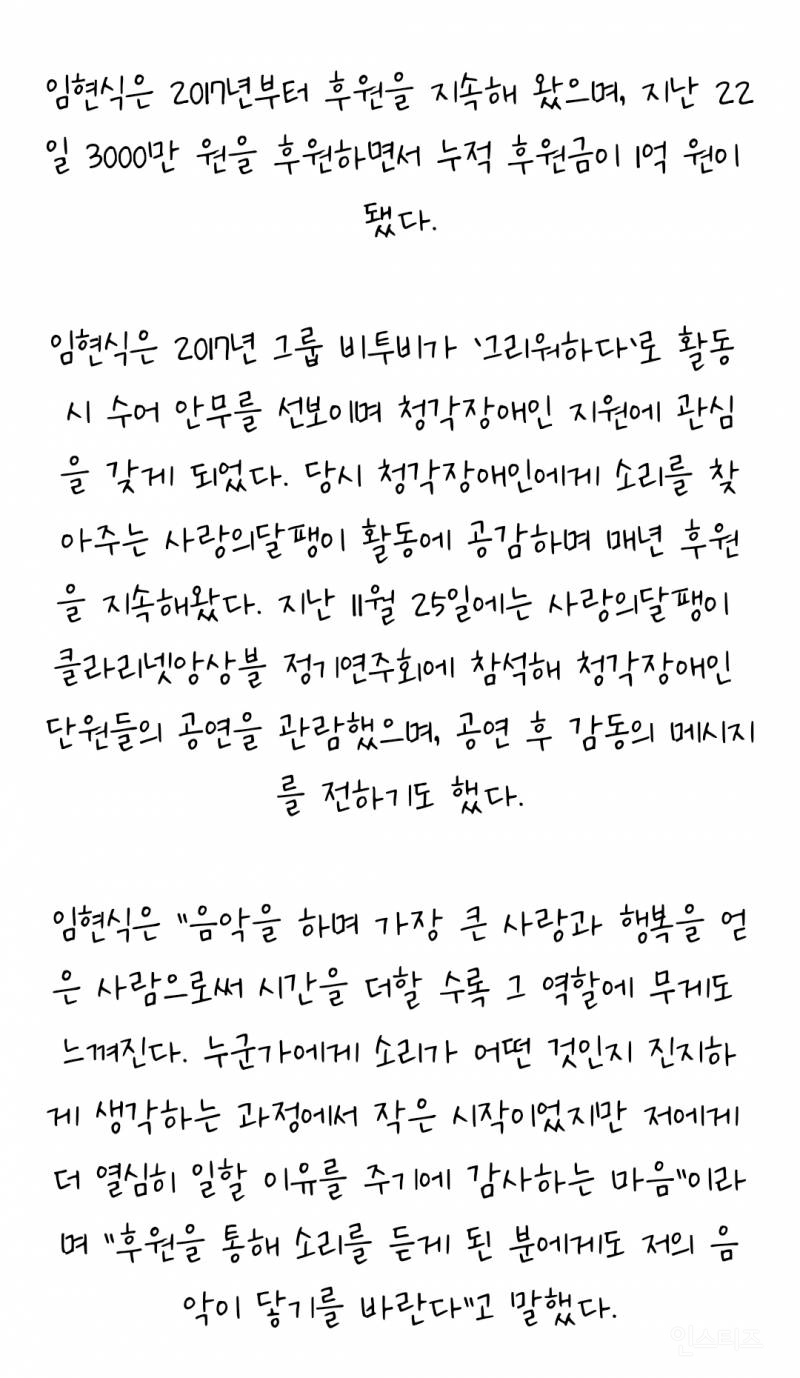 임현식은 2017년부터 후원을 지속해 왔으며, 지난 22
일 3000만 원을 후원하면서 누적 후원금이 1억 원이
됐다.
임현식은 2017년 그룹 비투비가 '그리워하다'로 활동
시 수어 안무를 선보이며 청각장애인 지원에 관심
을 갖게 되었다. 당시 청각장애인에게 소리를 찾
아주는 사랑의달팽이 활동에 공감하며 매년 후원
을 지속해왔다. 지난 11월 25일에는 사랑의달팽이
클라리넷앙상블 정기연주회에 참석해 청각장애인
단원들의 공연을 관람했으며, 공연 후 감동의 메시지
를 전하기도 했다.
임현식은 "음악을 하며 가장 큰 사랑과 행복을 얻
은 사람으로써 시간을 더할 수록 그 역할에 무게도
느껴진다. 누군가에게 소리가 어떤 것인지 진지하
게 생각하는 과정에서 작은 시작이었지만 저에게
더 열심히 일할 이유를 주기에 감사하는 마음"이라
며 "후원을 통해 소리를 듣게 된 분에게도 저의 음
악이 닿기를 바란다"고 말했다.
인스티즈